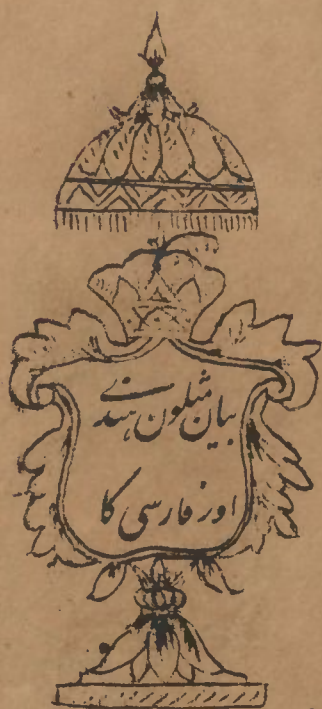 بیان مثلون ہندے
اور فارسی کا